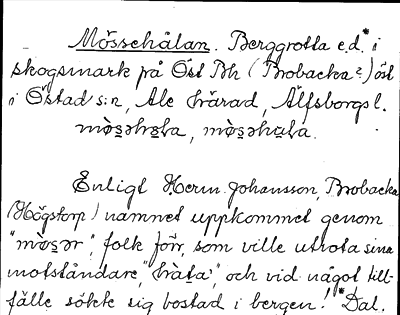 Mössehålan. Berggrotta e.d.* i
skogsmark på Öst Bh (Brobacka?) öst
i Östad s:n, Ale härad, Älfsborgs l.
Enligt Herm. Johansson, Brobacka
(Högstorp) namnet uppkommet genom
folk förr, som ville utrota sina
motståndare, och vid något till-
fälle sökte sig bostad i bergen!" *Dal.